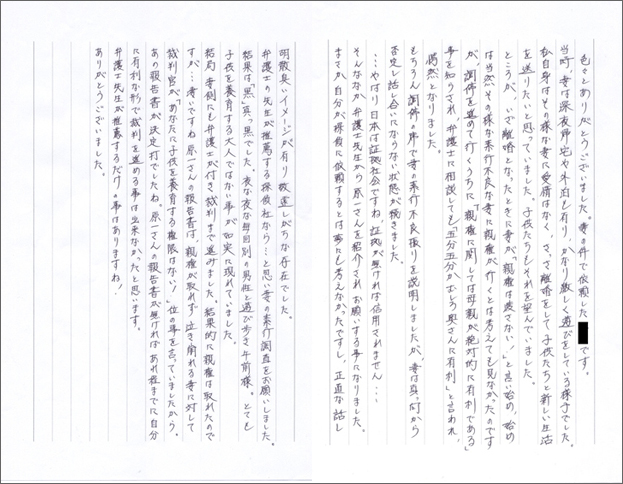 色々とありがとうございました。妻の件で依頼した
です。
当時、妻は深夜帰宅や外泊も有り、かなり激しく遊びをしている様子でした。
私自身はその様な妻に愛情はなく、さっさと離婚をして子供たちと新しい生活
を送りたいと思っていました。子供たちもそれを望んでいました。
ところが、いざ離婚となったときに妻が「親権は渡さない！」と言い始め、始め
は当然その様な素行不良な妻に親権が行くとは考えても見なかったのです
が、調停を進めて行くうちに、親権に関しては母親が絶対的に有利である
事を知らされ、弁護士に相談しても「五分五分かむしろ奥さんに有利」と言われ、
愕然となりました。
もちろん調停の席で妻の素行不良振りを説明しましたが、妻は真っ向から
否定し話し合いにならない状態が続きました。
…やはり日本は証拠社会ですね、証拠が無ければ信用されません…
そんななか弁護士先生から原一さんを紹介されお願いする事になりました。
まさか自分が探偵に依頼するとは夢にも考えなかったですし、正直な話し
胡散臭いイメージが有り敬遠しがちな存在でした。
弁護士の先生が推薦する探偵社なら…と思い妻の素行調査をお願いしました。
結果は「黒」真っ黒でした。夜な夜な毎回別の男性と遊び歩き午前様。とても
子供を養育する大人ではない事が如実に現れていました。
結局、妻側にも弁護士が付き裁判まで進めました。結果的に親権は取れたので
すが…凄いですね原一さんの報告書は。親権が取れず泣き崩れる妻に対して
裁判官が「あなたに子供を養育する権限はない！」位の事を言っていましたから。
あの報告書が決定打でしたね。原一さんの報告書が無ければあれ程までに自分
に有利な形で裁判を進める事は出来なかったと思います。
弁護士先生が推薦するだけの事はありますね！
ありがとうございました。